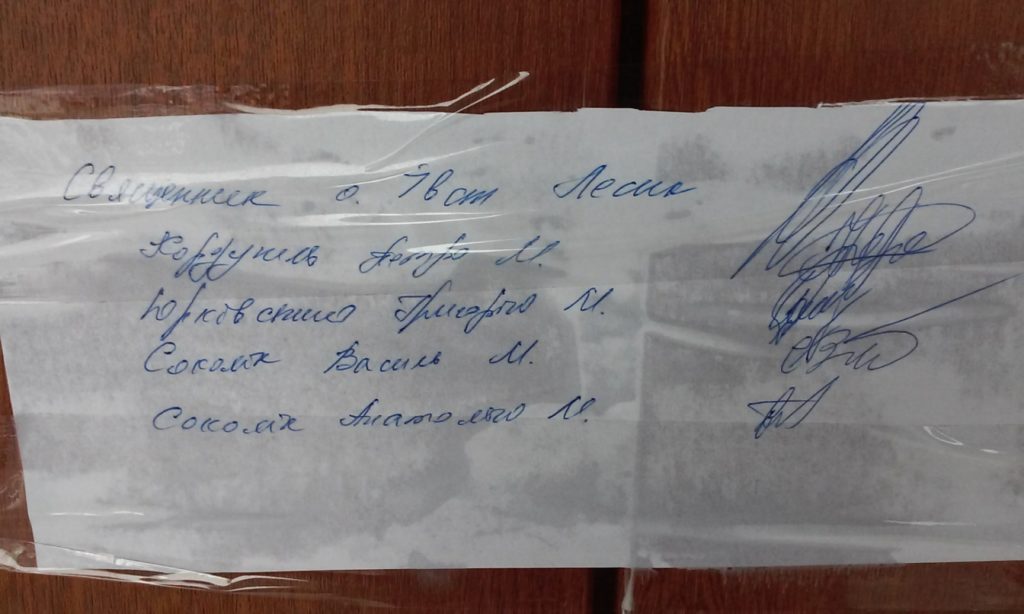 Священник о. Іван Лесик
Петро М.
Юрковський Григорій М.
Соколік Василь М.
Соколік Анатолій М.